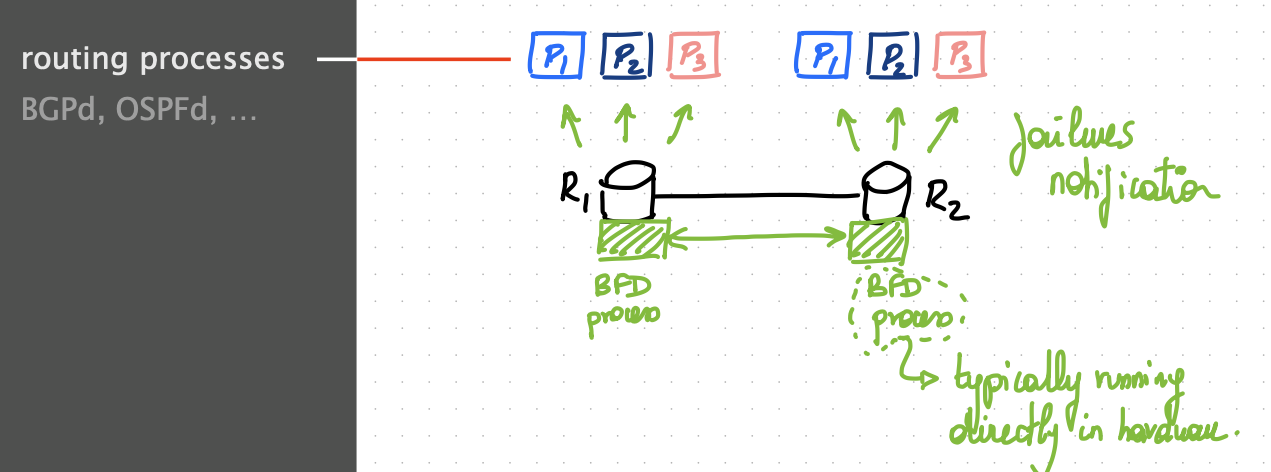 routing processes
BGPd, OSPFd, …
P1 P2 P3
P1 P2 P3
failures
notification
R1
R2
BFD
process
BFD
process
typically running
directly in hardware.